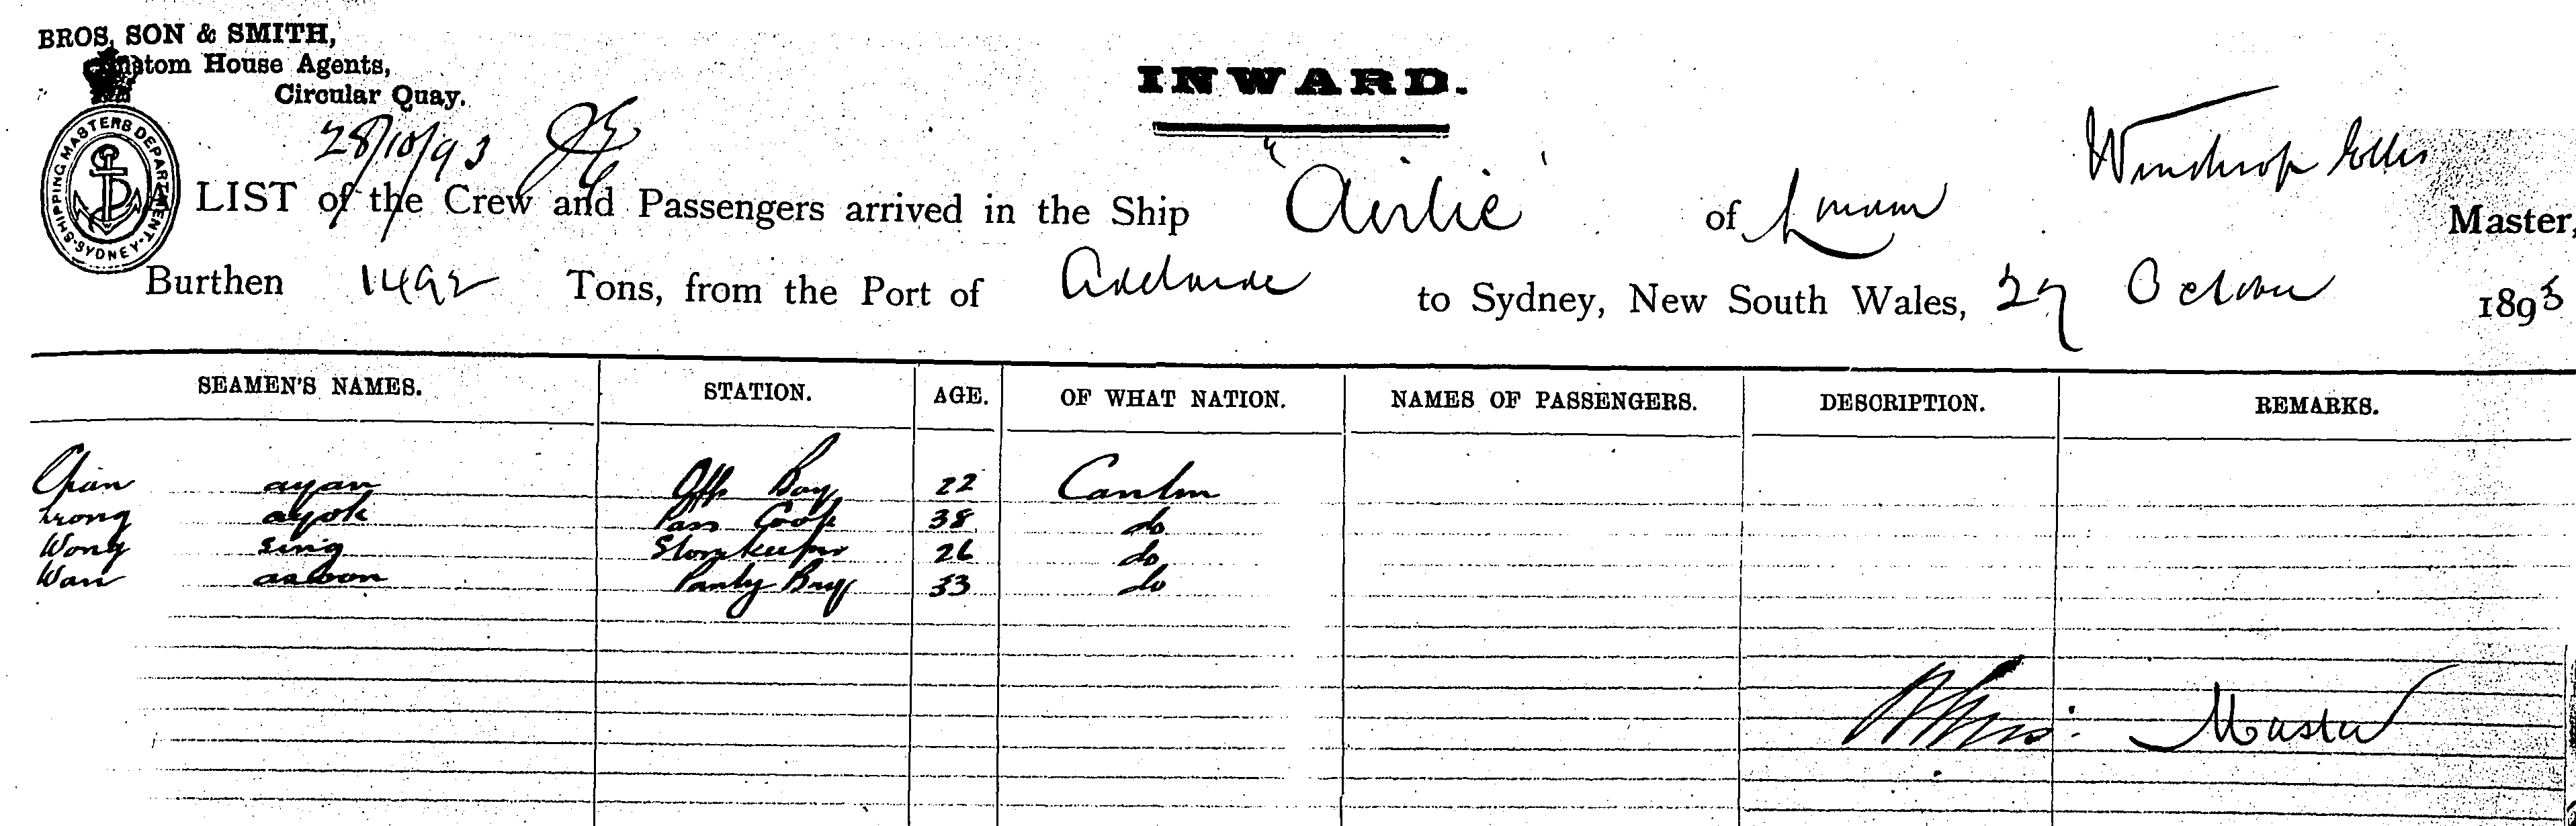 BROS, SON & SMITH,
Custom House Agents,
Circular Quay.
INWARD.
SHIPPING MASTERS DEPARTMENT SYDNEY
28/10/93
Winthrop Ellis
LIST of the Crew and Passengers arrived in the Ship "Airlie" of London Master,
Burthen 1492 Tons, from the Port of Adelaide to Sydney, New South Wales, 27 October 1893
SEAMEN'S NAMES. STATION. AGE. OF WHAT NATION. NAMES OF PASSENGERS. DESCRIPTION. REMARKS.
Chan ayan Offs Boy 22 Canton
ayok Pass Cook 38 do
Wong sing Storekeeper 26 do
Wan Pantry Boy 33 do
Master